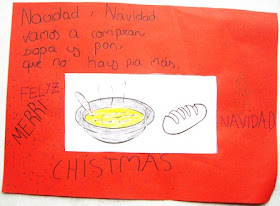 Navidad, Navidad
vamos a comprar
sopa y pan,
que no hay pa más.
FELIZ
NAVIDAD
MERRY
CHISTMAS